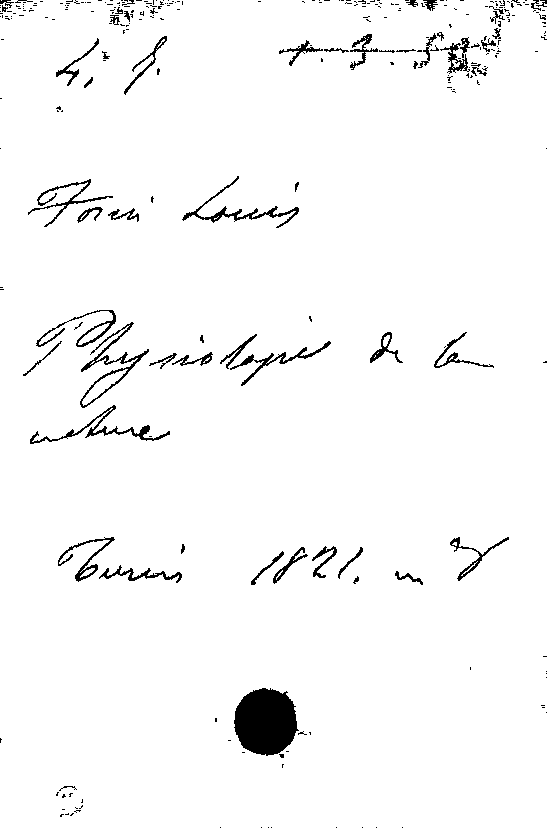 4. f. 1. 3. 5
Forni Louis
Physiologie de la
nature
Turin 1821. in 8